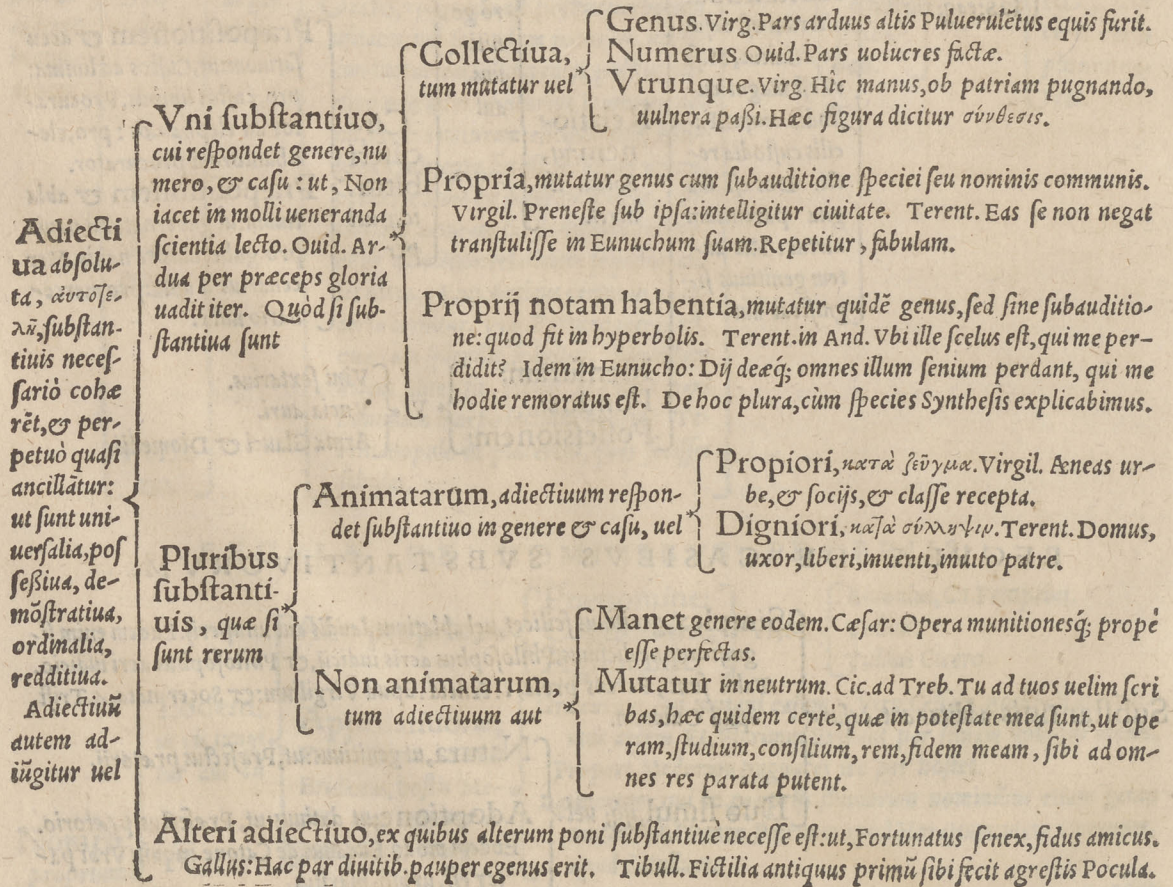 Adiecti
ua absolu-
ta, αὐτοτε-
λῆ, substan-
tiuis neces-
sariò cohæ
rēt, & per-
petuò quasi
ancillātur:
ut sunt uni-
uersalia, pos
seßiua, de-
mōstratiua,
ordinalia,
redditiua.
Adiectiuū
autem ad-
iūgitur uel
Vni substantiuo,
cui respondet genere, nu
mero, & casu: ut, Non
iacet in molli ueneranda
scientia lecto. Ouid. Ar-
dua per præceps gloria
uadit iter. Quòd si sub-
stantiua sunt
Collectiua,
tum mutatur uel
Genus. Virg. Pars arduus altis Puluerulētus equis furit.
Numerus Ouid. Pars uolucres factæ.
Vtrunque. Virg. Hic manus, ob patriam pugnando,
uulnera paßi. Hæc figura dicitur σύνθεσις.
Propria, mutatur genus cum subauditione speciei seu nominis communis.
Virgil. Preneste sub ipsa: intelligitur ciuitate. Terent. Eas se non negat
transtulisse in Eunuchum suam. Repetitur, fabulam.
Proprij notam habentia, mutatur quidē genus, sed sine subauditio-
ne: quod fit in hyperbolis. Terent. in And. Vbi ille scelus est, qui me per-
didit? Idem in Eunucho: Dij deæq́; omnes illum senium perdant, qui me
hodie remoratus est. De hoc plura, cùm species Synthesis explicabimus.
Pluribus
substanti-
uis, quæ si
sunt rerum
Animatarum, adiectiuum respon-
det substantiuo in genere & casu, uel
Propiori, κατὰ ζεῦγμα. Virgil. Æneas ur-
be, & socijs, & classe recepta.
Digniori, κατὰ σύλληψιν. Terent. Domus,
uxor, liberi, inuenti, inuito patre.
Non animatarum,
tum adiectiuum aut
Manet genere eodem. Cæsar: Opera munitionesq́; propè
esse perfectas.
Mutatur in neutrum. Cic. ad Treb. Tu ad tuos uelim scri
bas, hæc quidem certè, quæ in potestate mea sunt, ut ope
ram, studium, consilium, rem, fidem meam, sibi ad om-
nes res parata putent.
Alteri adiectiuo, ex quibus alterum poni substantiuè necesse est: ut, Fortunatus senex, fidus amicus.
Gallus: Hac par diuitib. pauper egenus erit. Tibull. Fictilia antiquus primū sibi fecit agrestis Pocula.